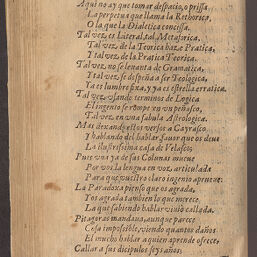 Aqui no ay que tomar despacio, o prissa
La perpetua que llama la Rethorica,
O la que la Dialetica concissa.
Tal vez, es Literal, tal, Metaforica,
Tal vez, de la Teorica haze Pratica,
Y tal vez, de la Pratica Teorica.
Tal vez, no se leuanta de Gramatica,
Y tal vez, se despeña a ser Teologica,
Ya es lumbre fixa, y ya es estrella erratica.
Tal vez, vsando terminos de Logica
El ingenio se rompe en vn peñasco,
Tal vez, en vna fabula Astrologica.
Mas dexando estos versos a Cayrasco,
Y hablando del hablar, fauor que os deue
La illustrissima casa de Velasco;
Pues vna ya de sus Colunas mueue
Por vos la lengua en voz, articulada
Para que vuestro claro ingenio aprueue:
La Paradoxa pienso que os agrada,
Y os agrada tambien lo que merece
La que sabiendo hablar viuio callada.
Pitagoras mandaua, aunque parece
Cosa impossible, viendo quantos daños
El mucho hablar a quien aprende ofrece,
Callar a sus dicipulos seys años;